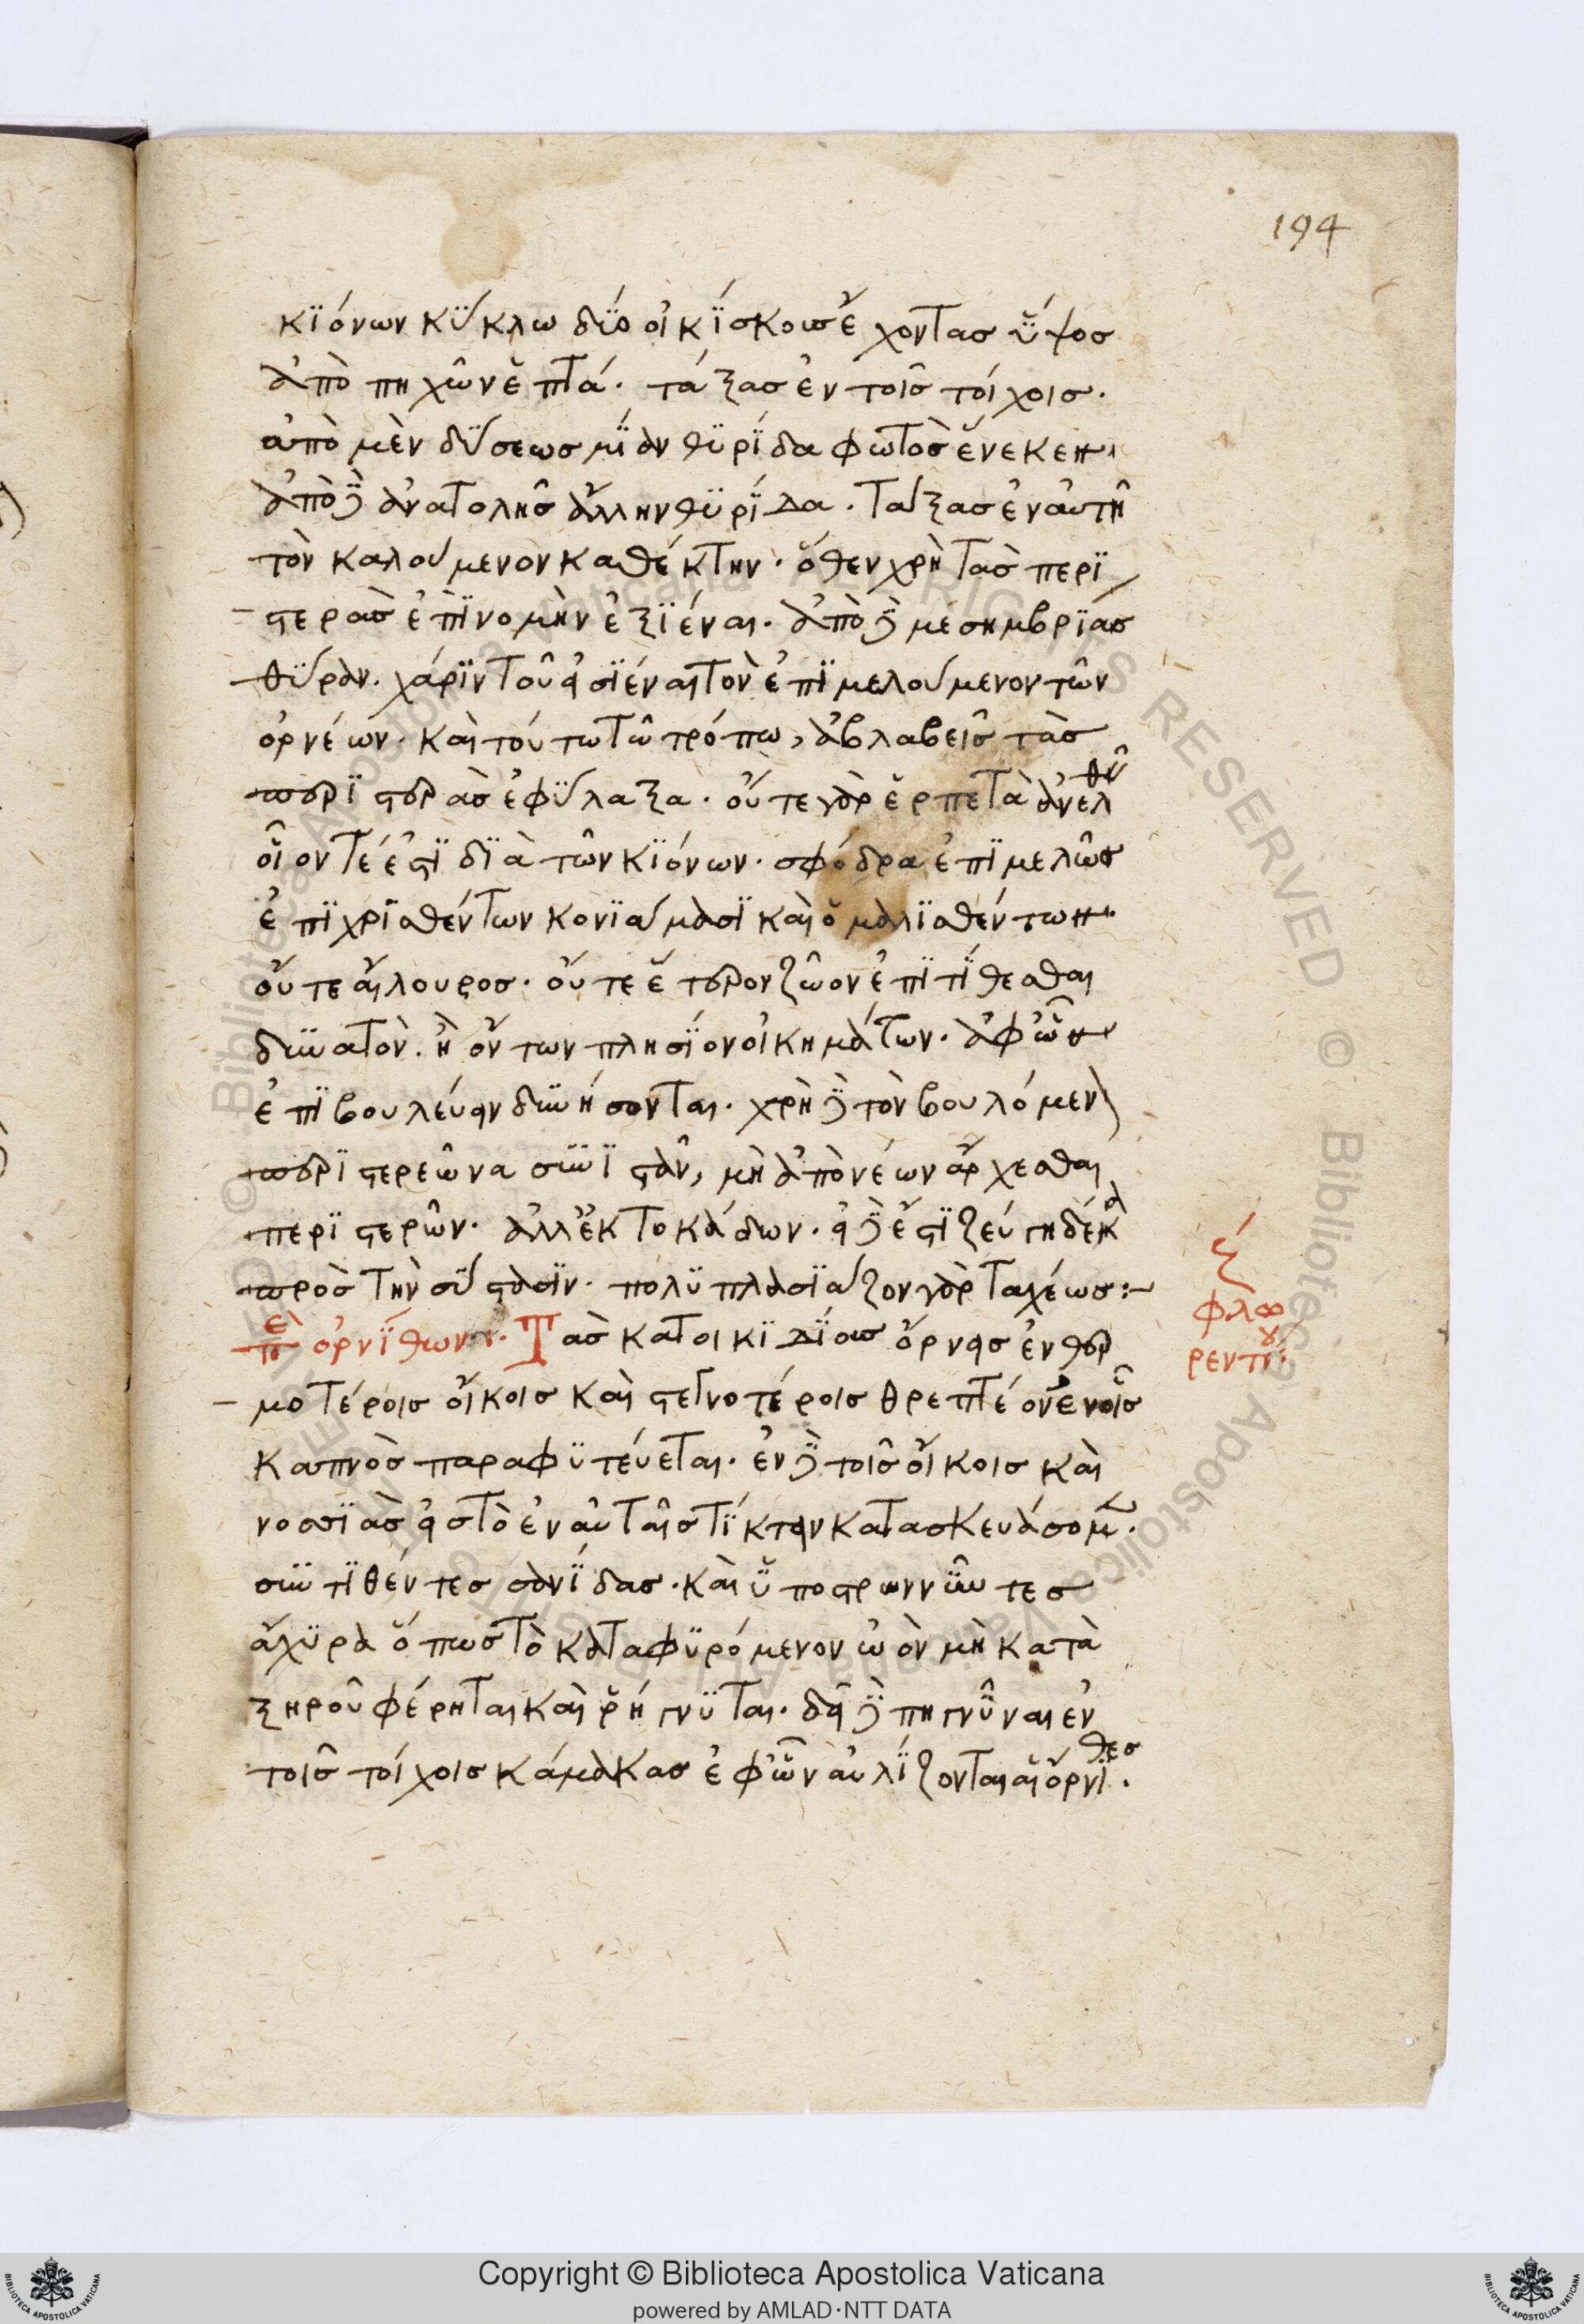 194
κϊόνων κΰκλω δΰο οἰκΐσκους ἔχοντας ὕψος
ἀπὸ πηχῶν ἑπτά· τάξας ἐν τοῖς τοίχοις·
ἀπὸ μὲν δΰσεως μΐαν θϋρΐδα φωτὸς ἕνεκεν·
ἀπὸ δὲ ἀνατολῆς ἄλλην θϋρΐδα. τάξας ἐν αὐτῆ
τὸν καλούμενον καθέκτην· ὅθεν χρὴ τὰς περϊ
στερὰς ἐπῒ νομὴν ἐξϊέναι. ἀπὸ δὲ μεσημβρΐας
θΰραν. χάρϊν τοῦ εἰσϊέναι τὸν ἐπϊμελούμενον τῶν
ὀρνέων· καὶ τούτω τῶ τρόπω, ἀβλαβεῖς τὰς
περϊστερὰς ἐφΰλαξα· οὔτε γὰρ ἑρπετὰ ἀνελθεῖν
οἷον τέ ἐστϊ δϊὰ τῶν κϊόνων· σφόδρα ἐπϊμελῶς
ἐπϊχρϊσθέντων κονϊάμασϊ καὶ ὁμαλϊσθέντων·
οὔτε αἴλουρος· οὔτε ἕτερον ζῶον ἐπϊτΐθεσθαι
δϋνατὸν. ἢ ὄντων πλησΐον οἰκημάτων· ἀφ' ὧν
ἐπϊβουλεύειν δϋνήσονται· χρὴ δὲ τὸν βουλόμεν
περϊστερεῶνα σϋνϊστᾶν, μὴ ἀπὸ νέων ἄρχεσθαι
περϊστερῶν· ἀλλ' ἐκ τοκάδων· εἰ δὲ ἔστϊ ζεύγη δέκα
πρὸς τὴν σΰστασϊν· πολϋπλασϊάζον γὰρ ταχέως:–
περὶ ὀρνΐθων. Τὰς κατοικϊδΐους ὄρνεις ἐν θερ
μοτέροις οἴκοις καὶ στενοτέροις θρεπτέον ἐν οἷς
καπνὸς παραφϋτεύεται. ἐν δὲ τοῖς οἴκοις καὶ
νοσσϊὰς εἰς τὸ ἐν αὐταῖς τΐκτειν κατασκευάσομεν.
σϋντϊθέντες σανΐδας. καὶ ὑποστρωννῦντες
ἄχϋρα ὅπως τὸ καταφϋρόμενον ὠὸν μὴ κατὰ
ξηροῦ φέρηται καὶ ῥήγνϋται. δεῖ δὲ πηγνῦναι ἐν
τοῖς τοίχοις κάμακας ἐφ' ὧν αὐλΐζονται αἱ ὄρνϊθες.
φλω
ρεντί
Copyright © Biblioteca Apostolica Vaticana
powered by AMLAD·NTT DATA